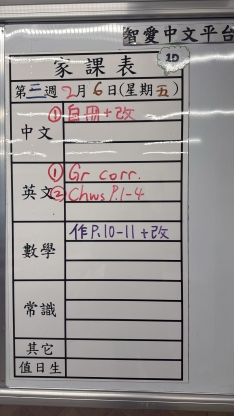 智愛中文平台
家課表 1D
第三週 2月6日(星期五)
中文 ①自冊+改
①Gr corr.
英文 ②Chws P.1-4
數學 作P.10-11+改
常識
其它
值日生